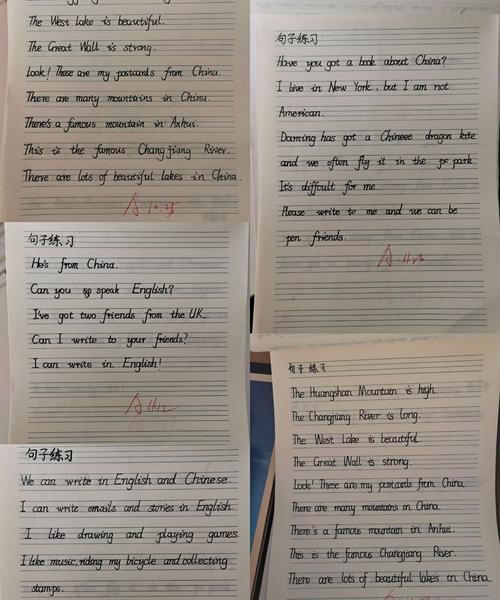 The West Lake is beautiful.
The Great Wall is strong.
Look! These are my postcards from China.
There are many mountains in China.
There's a famous mountain in Anhui.
This is the famous Changjiang River.
There are lots of beautiful lakes in China.
A 10.25
句子练习
Have you got a book about China?
I live in New York, but I am not
American.
Daming has got a Chinese dragon kite
and we often fly it in the park.
It's difficult for me.
Please write to me and we can be
pen friends.
句子练习
He's from China.
Can you speak English?
I've got two friends from the UK.
Can I write to your friends?
I can write in English!
A 11.12
句子练习
We can write in English and Chinese.
I can write emails and stories in English.
I like drawing and playing games.
I like music, riding my bicycle and collecting
stamps.
句子练习
The Huangshan Mountain is high.
The Changjiang River is long.
The West Lake is beautiful.
The Great Wall is strong.
Look! These are my postcards from China.
There are many mountains in China.
There's a famous mountain in Anhui.
This is the famous Changjiang River.
There are lots of beautiful lakes in China.